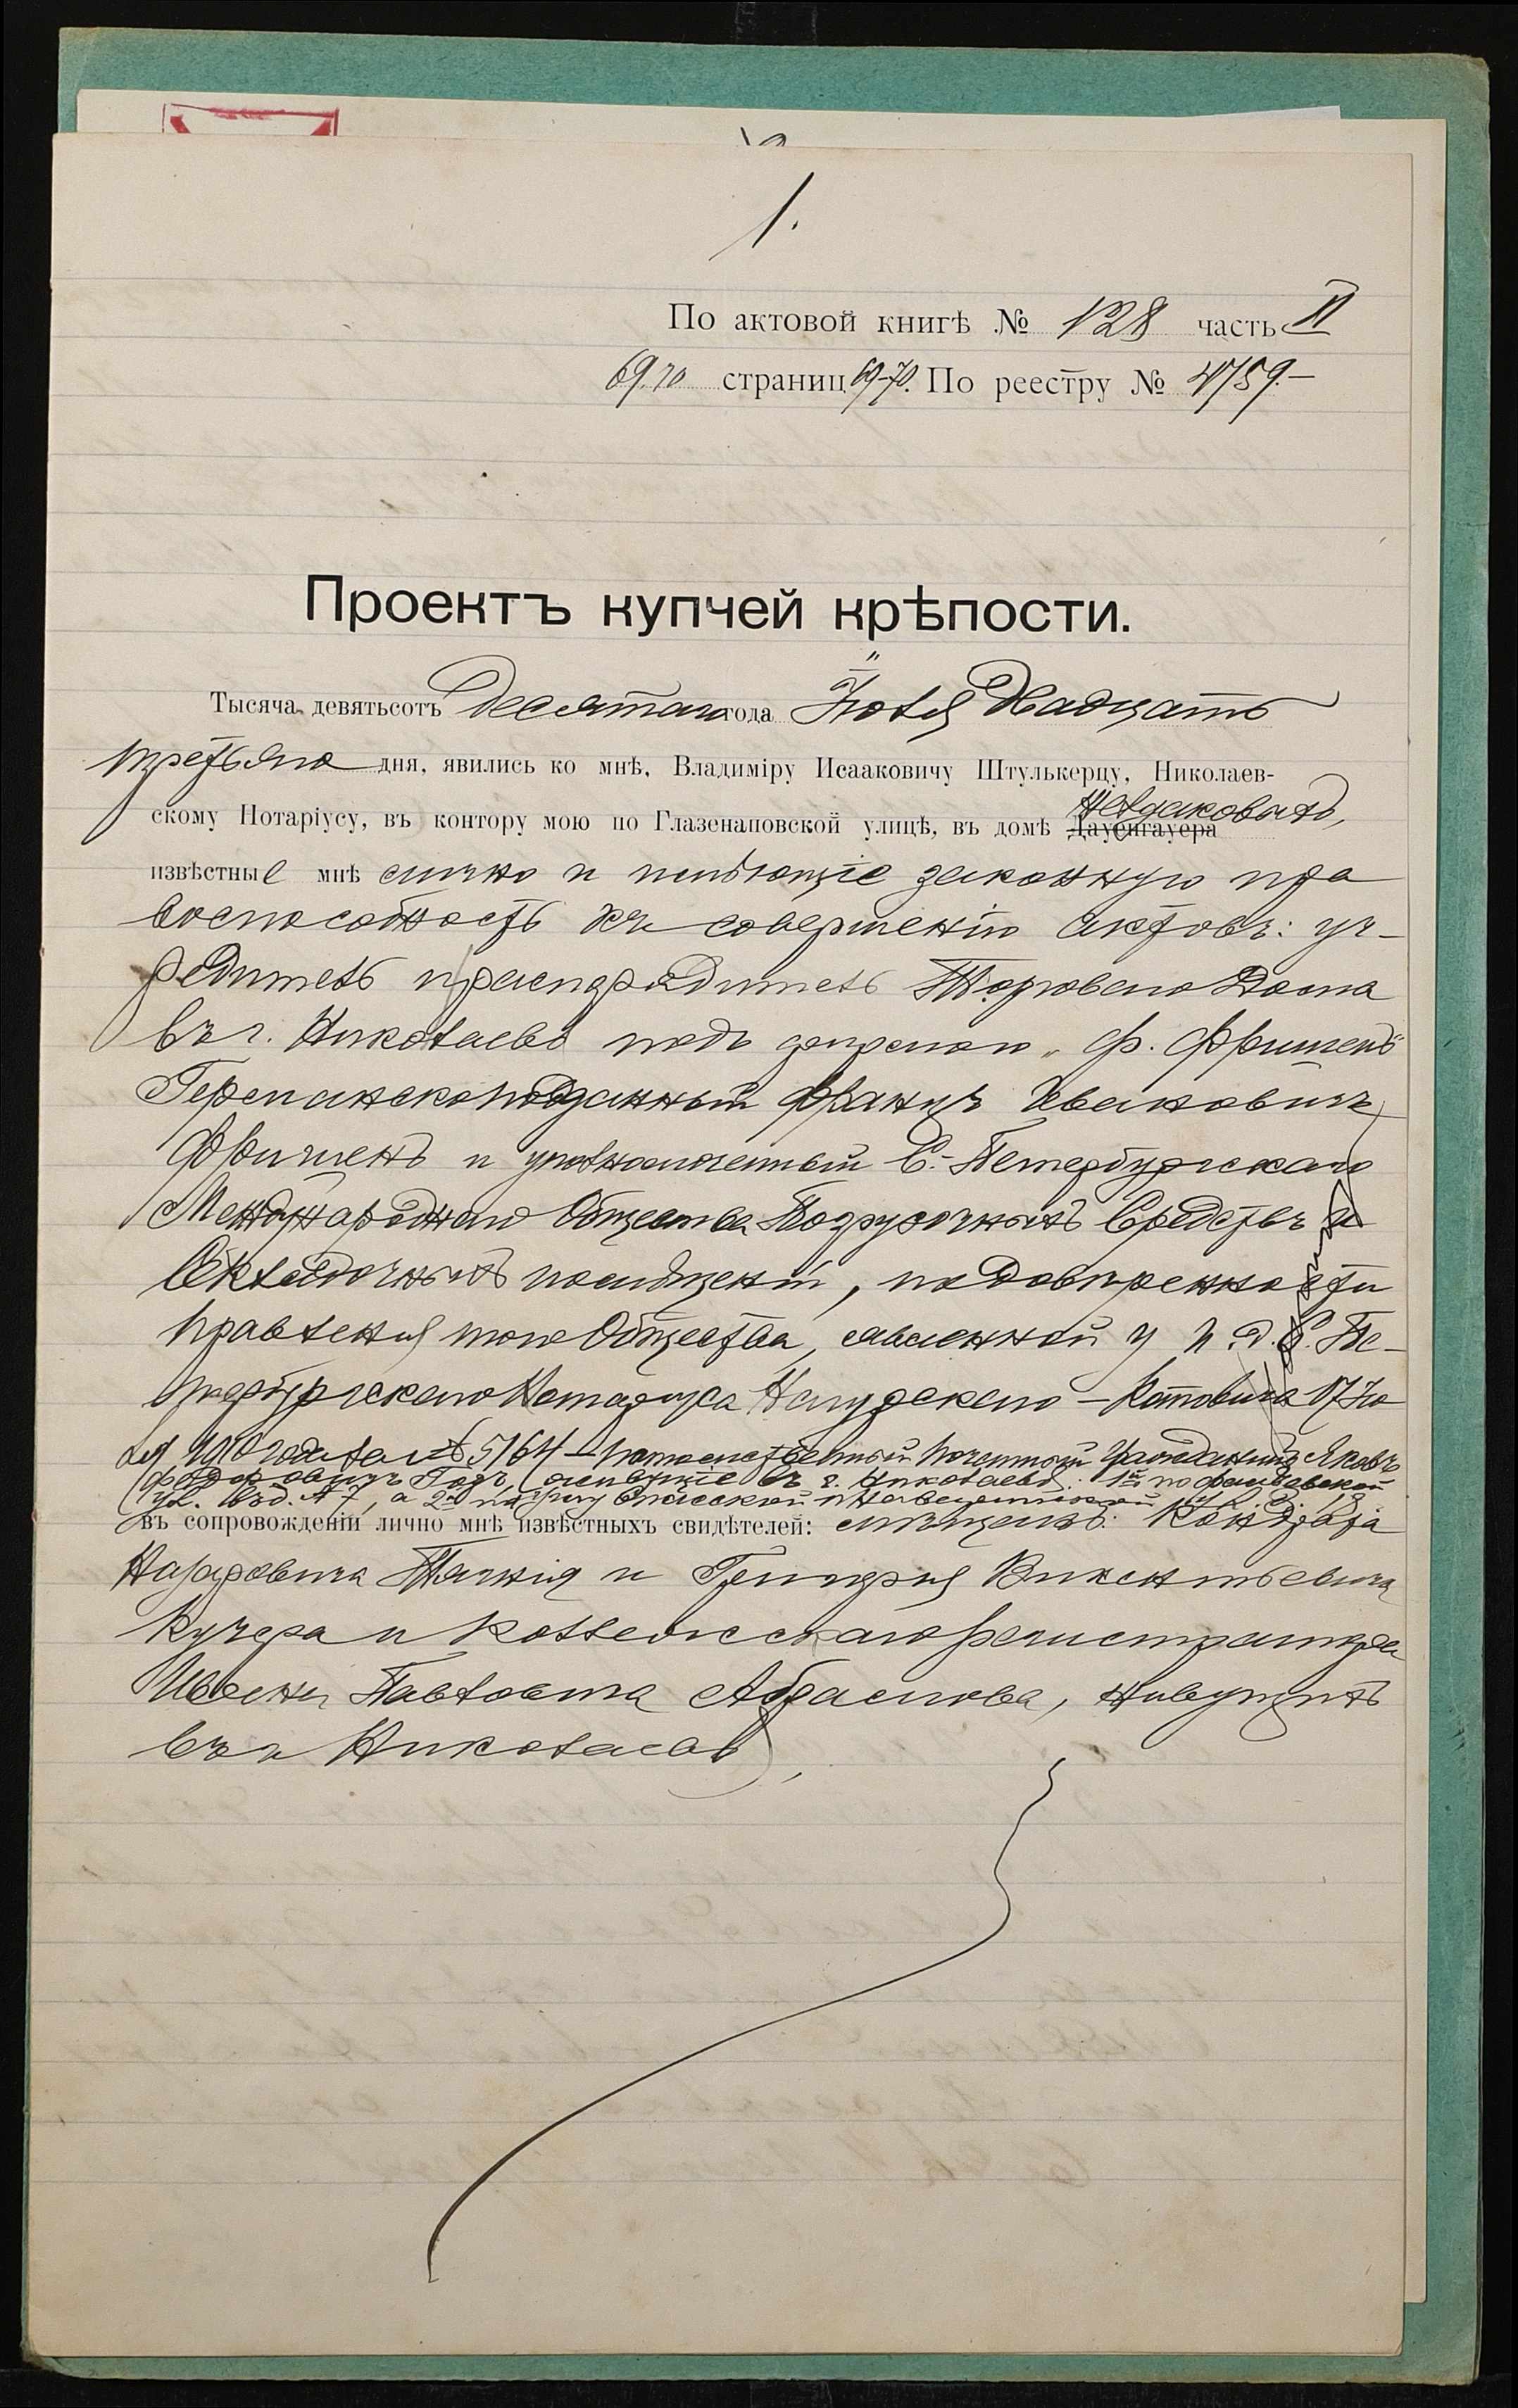 1.
По актовой книгѣ № 128 часть II
69-70 страниц 69-70. По реестру № 4759.-
Проектъ купчей крѣпости.
Тысяча девятьсотъ десятаго года Іюля двадцать
третьяго дня, явились ко мнѣ, Владиміру Исааковичу Штулькерцу, Николаев-
скому Нотаріусу, въ контору мою по Глазенаповской улицѣ, въ домѣ Даусигауера
извѣстные мнѣ лично и имѣющіе законную пра
воспособность къ совершенію актовъ: уч-
редитель и распорядитель Торговаго Дома
въ г. Николаевѣ подъ фирмою „Ф. Фришенъ"
Германскоподданный Францъ Ивановичъ
Фришенъ и уполномоченный С.-Петербургскаго
Международнаго Общества Погрузочныхъ Средствъ и
Складочныхъ помѣщеній, по довѣренности
Правленія того Общества, явленной у И. д. С. Пе-
тербургскаго Нотаріуса 17 Ію
ля 1910 года за № 5164 - Потомственный Почетный Гражданинъ Яковъ
Федоровичъ живущіе въ г. Николаевѣ: 1й по
ул. въ д. № 7, а 2й на углу Спасской и
въ сопровожденіи лично мнѣ извѣстныхъ свидѣтелей: мѣщанъ: Кондрата
Назаровича и Генриха Викентьевича
Кучера и Коллежскаго Регистратора
Ивана Павловича Абрамова, живущихъ
въ г. Николаевѣ,